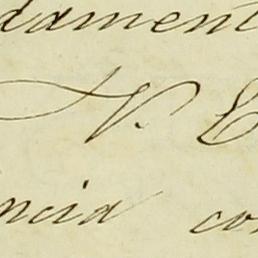 dament
V. E
ncia con